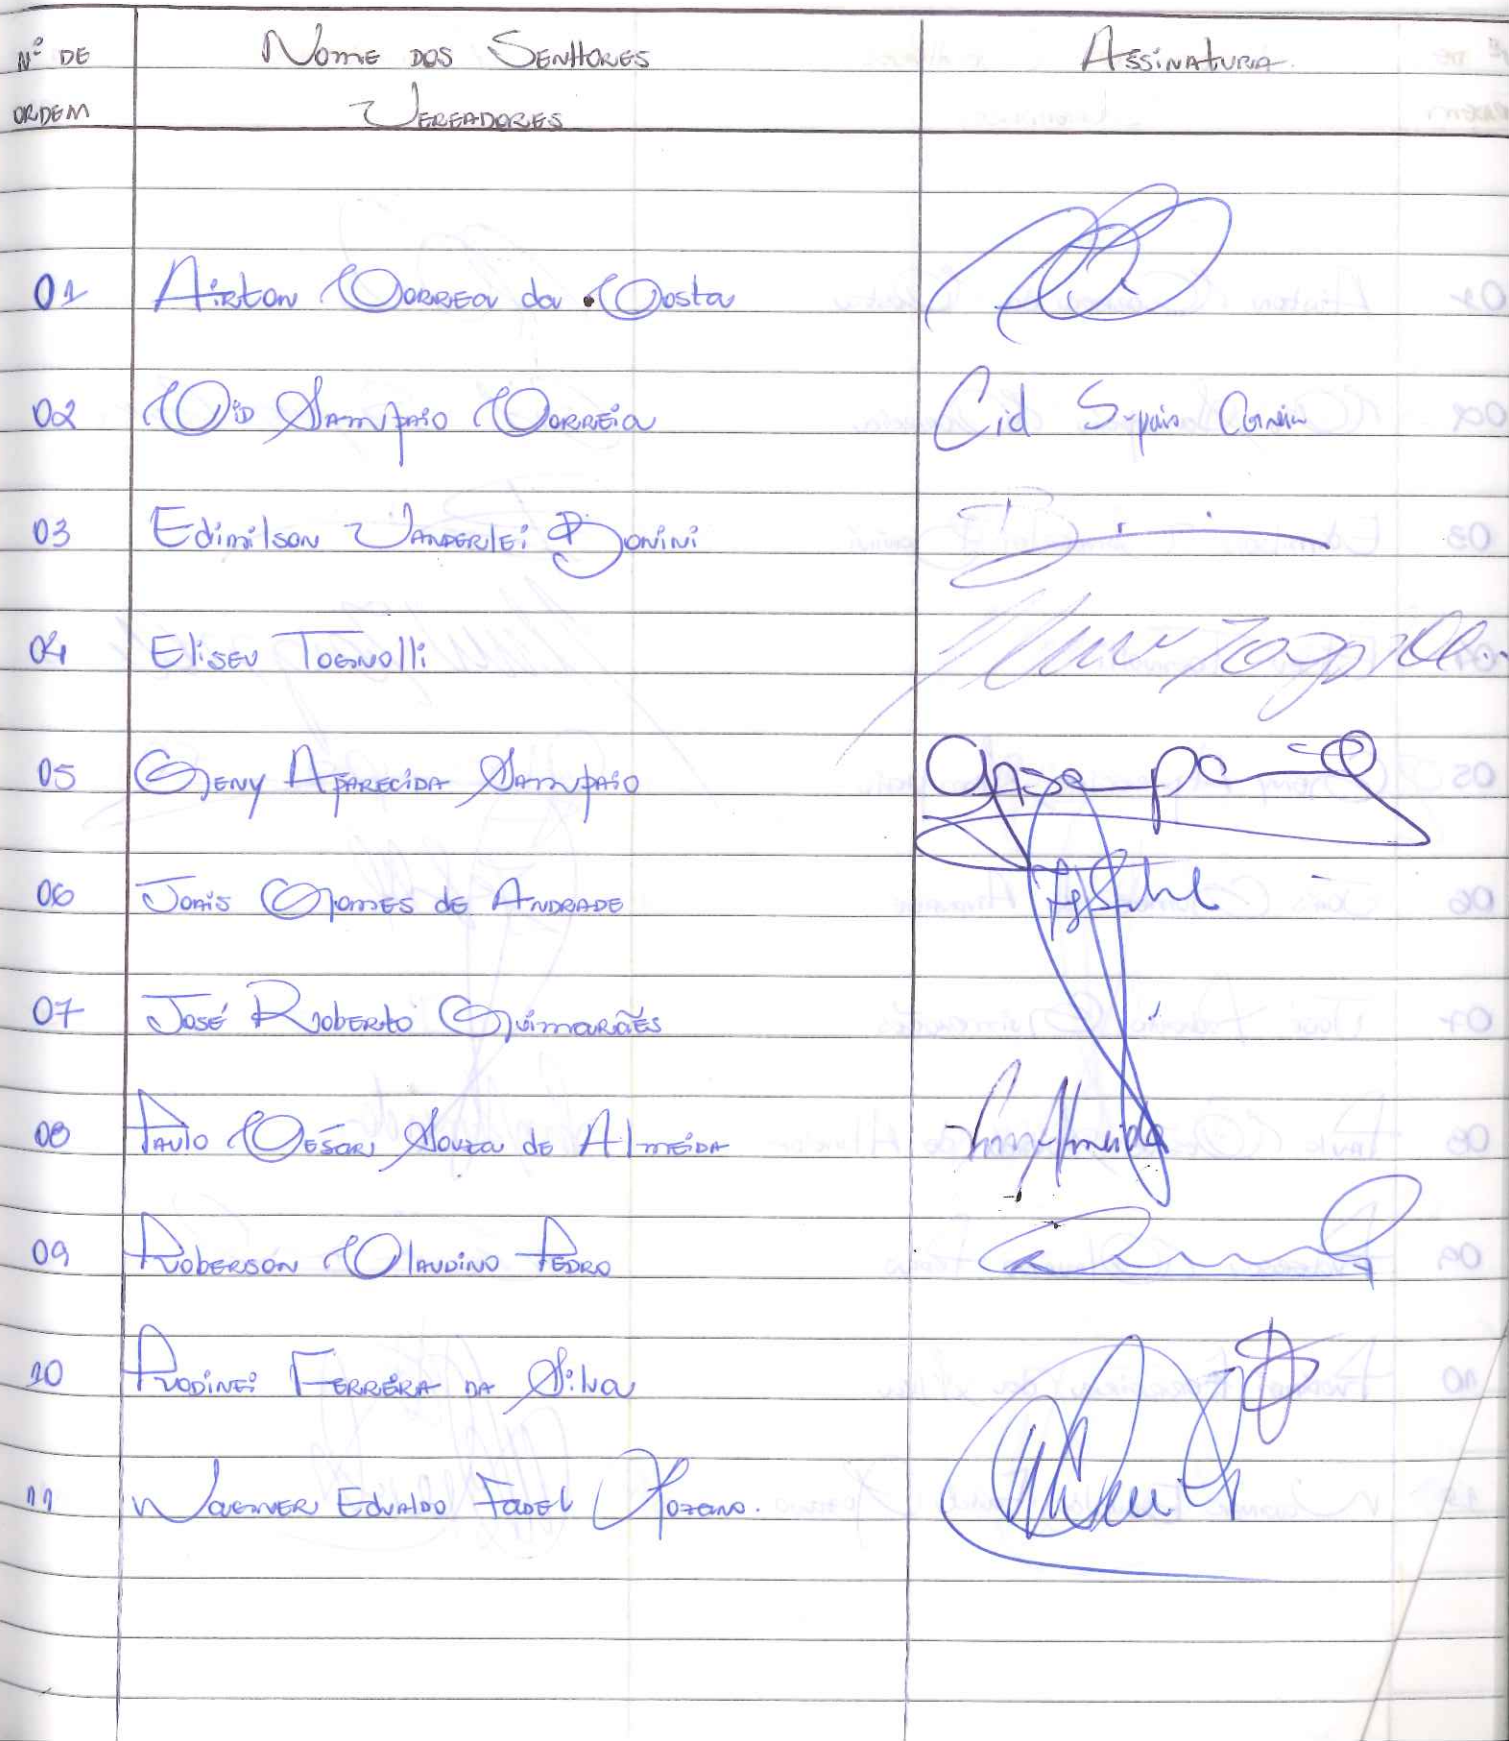 Nº DE Nome dos Senhores Assinatura
ORDEM Vereadores
01 Airton Correa da Costa
02 Cid Sampaio Correia Cid
03 Edimilson Vanderlei Bonini
04 Eliseu Tognolli
05 Geny Aparecida Sampaio
06 Jonis Gomes de Andrade
07 José Roberto Guimarães
08 Paulo César Souza de Almeida Almeida
09 Roberson Claudino Pedro
10 Rodinei Ferreira da Silva
11 Wagner Edvaldo Fadel Lozano.